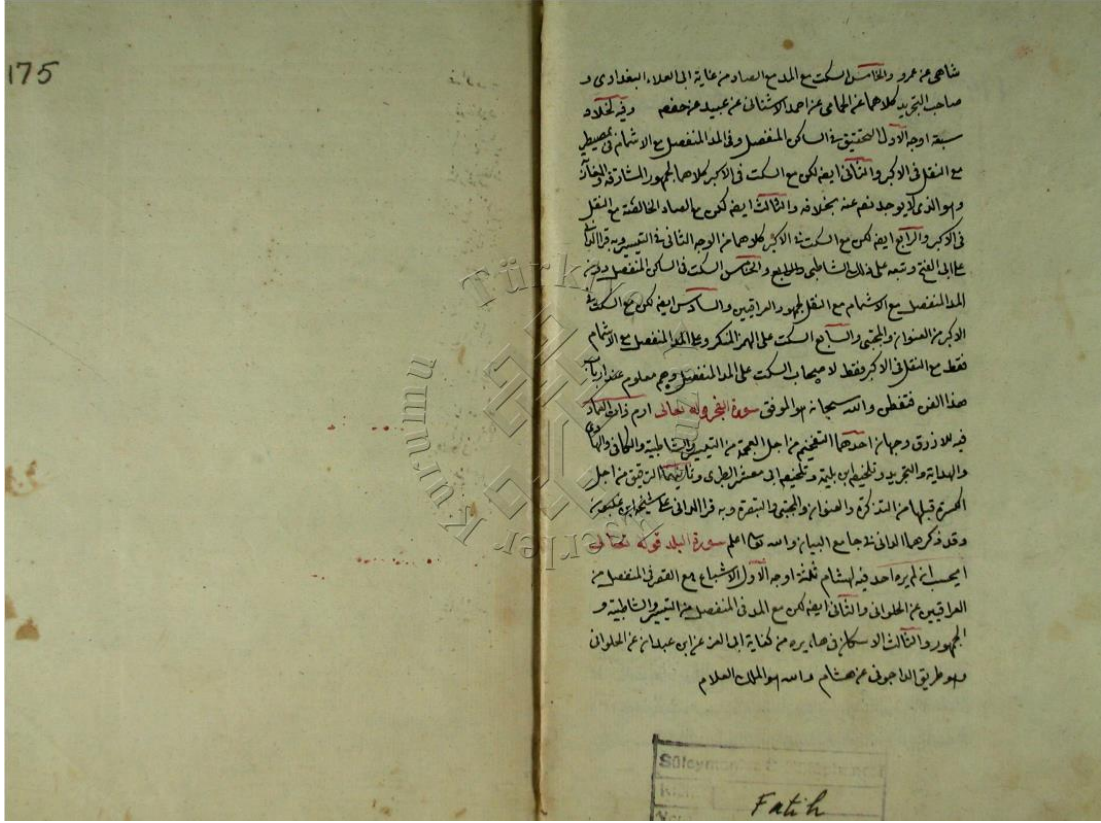 175
شاهى عن عمرو والخامس السكت مع المد مع الصاد من غاية ابى العلاء البغدادى و
صاحب التجريد كلاهما عن الحمامى عن احمد الاشنانى عن عبيد عن حفص وفيه لخلاد
سبعة اوجه الاول التحقيق فى الساكن المنفصل وفى المد المنفصل مع الاشمام فى بمصيطر
مع النقل فى الاكبر والثانى ايضه لكن مع السكت فى الاكبر كلاهما لجمهور المشارقة والمغاربة
وهو الذى لا يوجد نص عنه بخلافه والثالث ايضه لكن مع الصاد الخالصة مع النقل
فى الاكبر والرابع ايضه لكن مع السكت فى الاكبر كلاهما من الوجه الثانى فى التيسير وبه قرا الدانى
على ابى الفتح وتبعه على ذلك الشاطبى والخامس السكت فى الساكن المنفصل دون
المد المنفصل مع الاشمام مع النقل لجمهور العراقيين والسادس ايضه لكن مع السكت فى
الاكبر من العنوان والمجتبى والسابع السكت على الهمز المنكر وعلى المد المنفصل مع الاشمام
فقط مع النقل فى الاكبر فقط لاصحاب السكت على المد المنفصل وهم معلوم عند ارباب
هذا الفن فتفطن والله سبحانه هو الموفق سورة الفجر قوله تعالى ارم ذات العماد
فيه للازرق وجهان احدهما التفخيم من اجل العجمة من التيسير والشاطبية والكافى
والهداية والتجريد وتلخيص ابن بليمة وتلخيص ابى معشر الطبرى وثانيهما الترقيق من اجل
الكسرة قبلها من التذكرة والعنوان والمجتبى والتبصرة وبه قرا الدانى على شيخه ابن غلبون
وقد ذكرهما الدانى فى جامع البيان والله تعالى اعلم سورة البلد قوله تعالى
ايحسب ان لم يره احد فيه لهشام ثلثة اوجه الاول الاشباع مع القصر فى المنفصل من
العراقيين عن الحلوانى والثانى ايضه لكن مع المد فى المنفصل من التيسير والشاطبية و
الجمهور والثالث الاسكان فى هاء يره من كفاية ابى العز عن ابن عبدان عن الحلوانى
وهو طريق الداجونى عن هشام والله هو الملك العلام
Türkiye
Yazma
Eserler Kurumu
Fatih